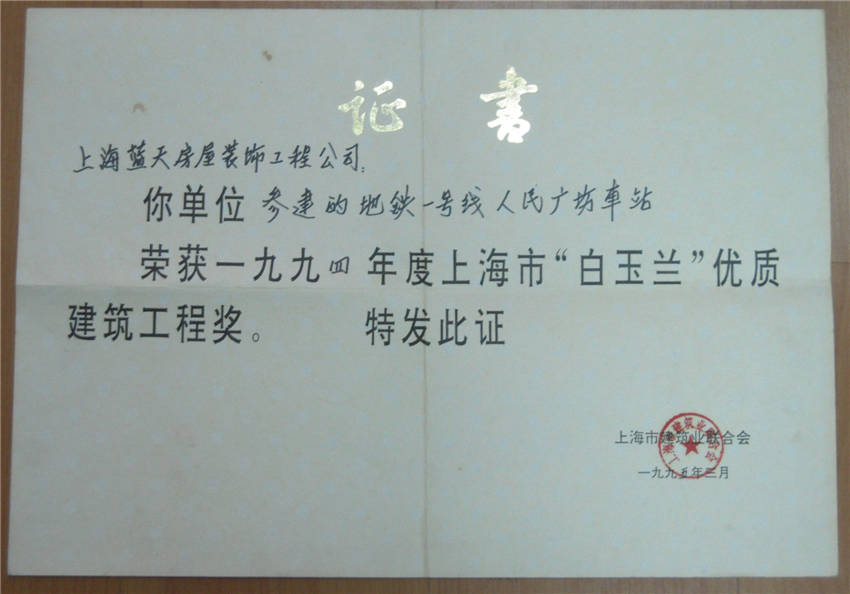 证 书
上海蓝天房屋装饰工程公司：
你单位 参建的地铁一号线人民广场车站
荣获一九九四年度上海市“白玉兰”优质
建筑工程奖。 特发此证
上海市建筑业联合会
上海市建筑业联合会
一九九五年三月